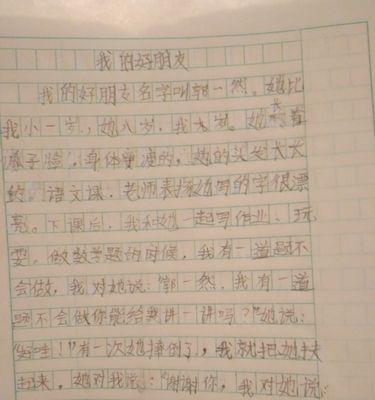 我的好朋友
我的好朋友名字叫郭一然。她比
我小一岁,她八岁,我九岁。她长着
瓜子脸,身体瘦瘦的,她的头发长长
的。语文课,老师表扬她写的字很漂
亮。下课后,我和她一起写作业、玩
耍。做数学题的时候,我有一道题不
会做,我对她说:“郭一然,我有一道
题不会做你能给我讲一讲吗?”她说:
“好哇!”有一次她摔倒了,我就把她扶
起来,她对我说:“谢谢你,我对她说: